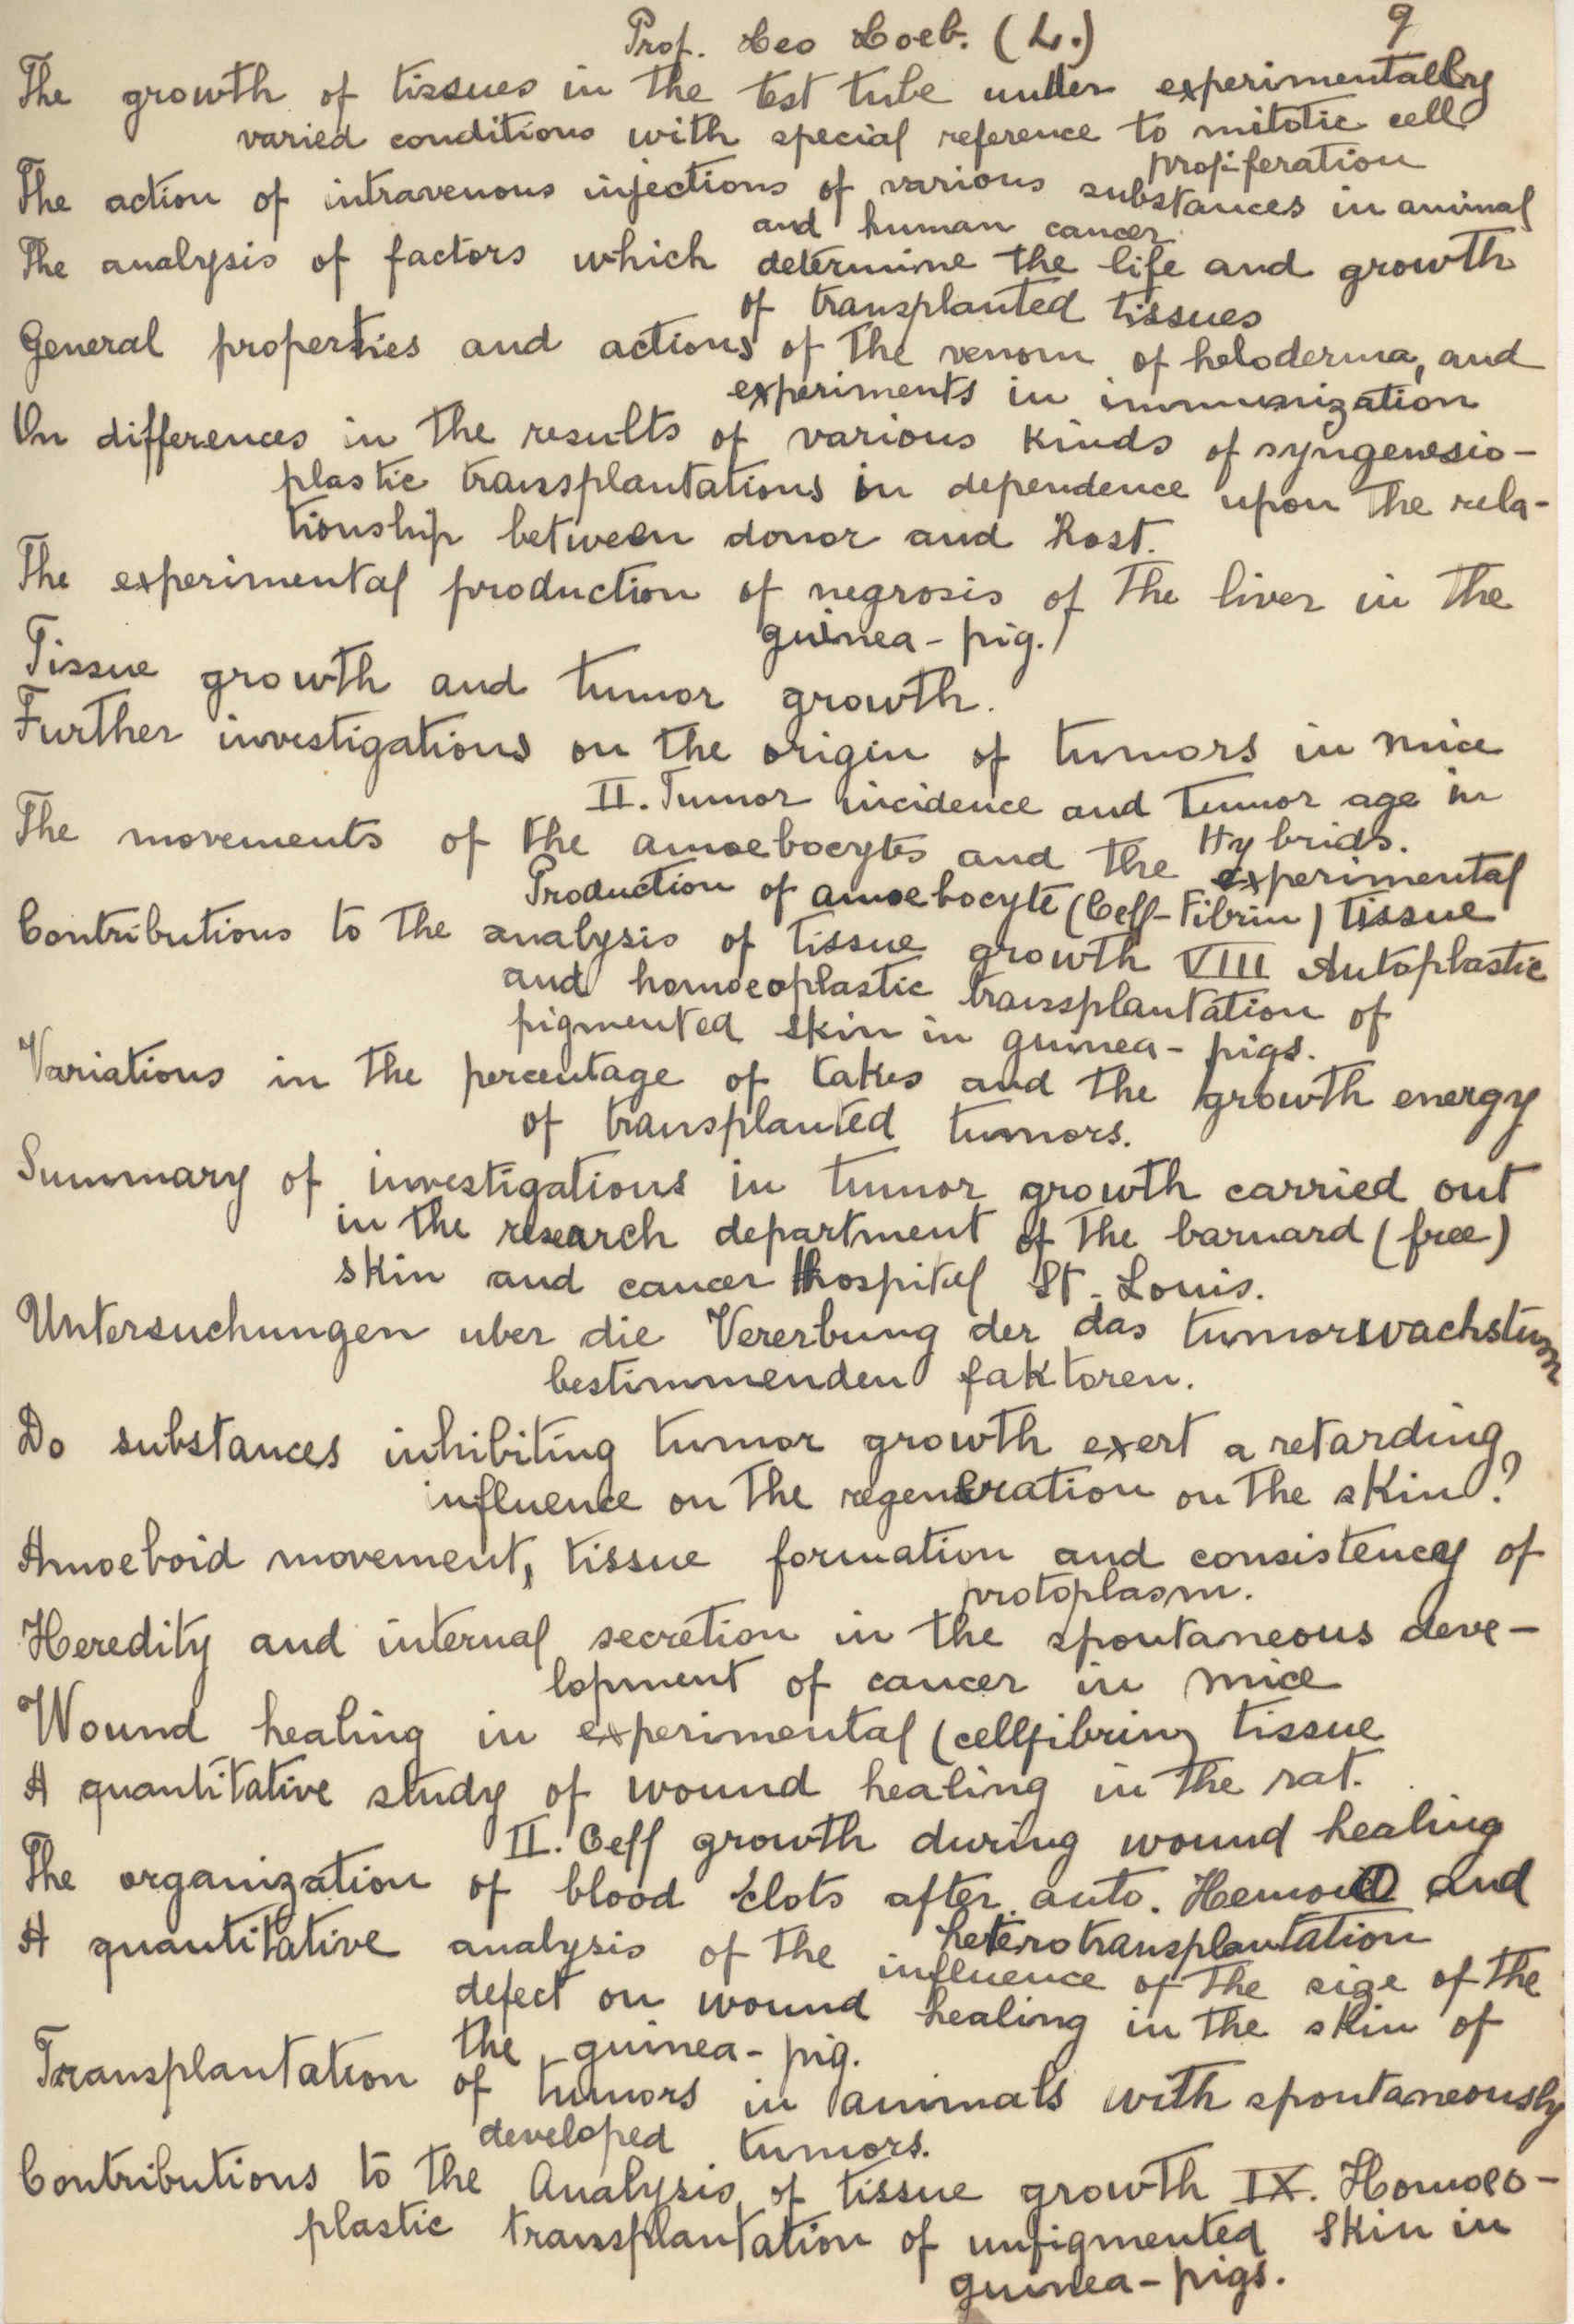 Prof. Leo Loeb. (L.) 9
The growth of tissues in the test tube under experimentally
varied conditions with special reference to mitotic cell
proliferation
The action of intravenous injections of various substances in animal
and human cancer.
The analysis of factors which determine the life and growth
of transplanted tissues
General properties and actions of the venom of heloderma, and
experiments in immunization
On differences in the results of various kinds of syngenesio-
plastic transplantations in dependence upon the rela-
tionship between donor and host.
The experimental production of negrosis of the liver in the
guinea-pig.
Tissue growth and tumor growth.
Further investigations on the origin of tumors in mice
II. Tumor incidence and tumor age in
Hybrids.
The movements of the amoebocytes and the experimental
Production of amoebocyte (Cell-Fibrin) tissue
Contributions to the analysis of tissue growth VIII Autoplastic
and homoeoplastic transplantation of
pigmented skin in guinea-pigs.
Variations in the percentage of takes and the growth energy
of transplanted tumors.
Summary of investigations in tumor growth carried out
in the research department of the barnard (free)
skin and cancer hospital St. Louis.
Untersuchungen uber die Vererbung der das tumorwachstum
bestimmenden faktoren.
Do substances inhibiting tumor growth exert a retarding
influence on the regeneration on the skin?
Amoeboid movement, tissue formation and consistency of
protoplasm.
Heredity and internal secretion in the spontaneous deve-
lopment of cancer in mice
Wound healing in experimental (cellfibrin) tissue
A quantitative study of wound healing in the rat.
II. Cell growth during wound healing
The organization of blood clots after auto. Hemoio and
heterotransplantation
A quantitative analysis of the influence of the size of the
defect on wound healing in the skin of
the guinea-pig.
Transplantation of tumors in animals with spontaneously
developed tumors.
Contributions to the Analysis of tissue growth IX. Homoeo-
plastic transplantation of unpigmented skin in
guinea-pigs.